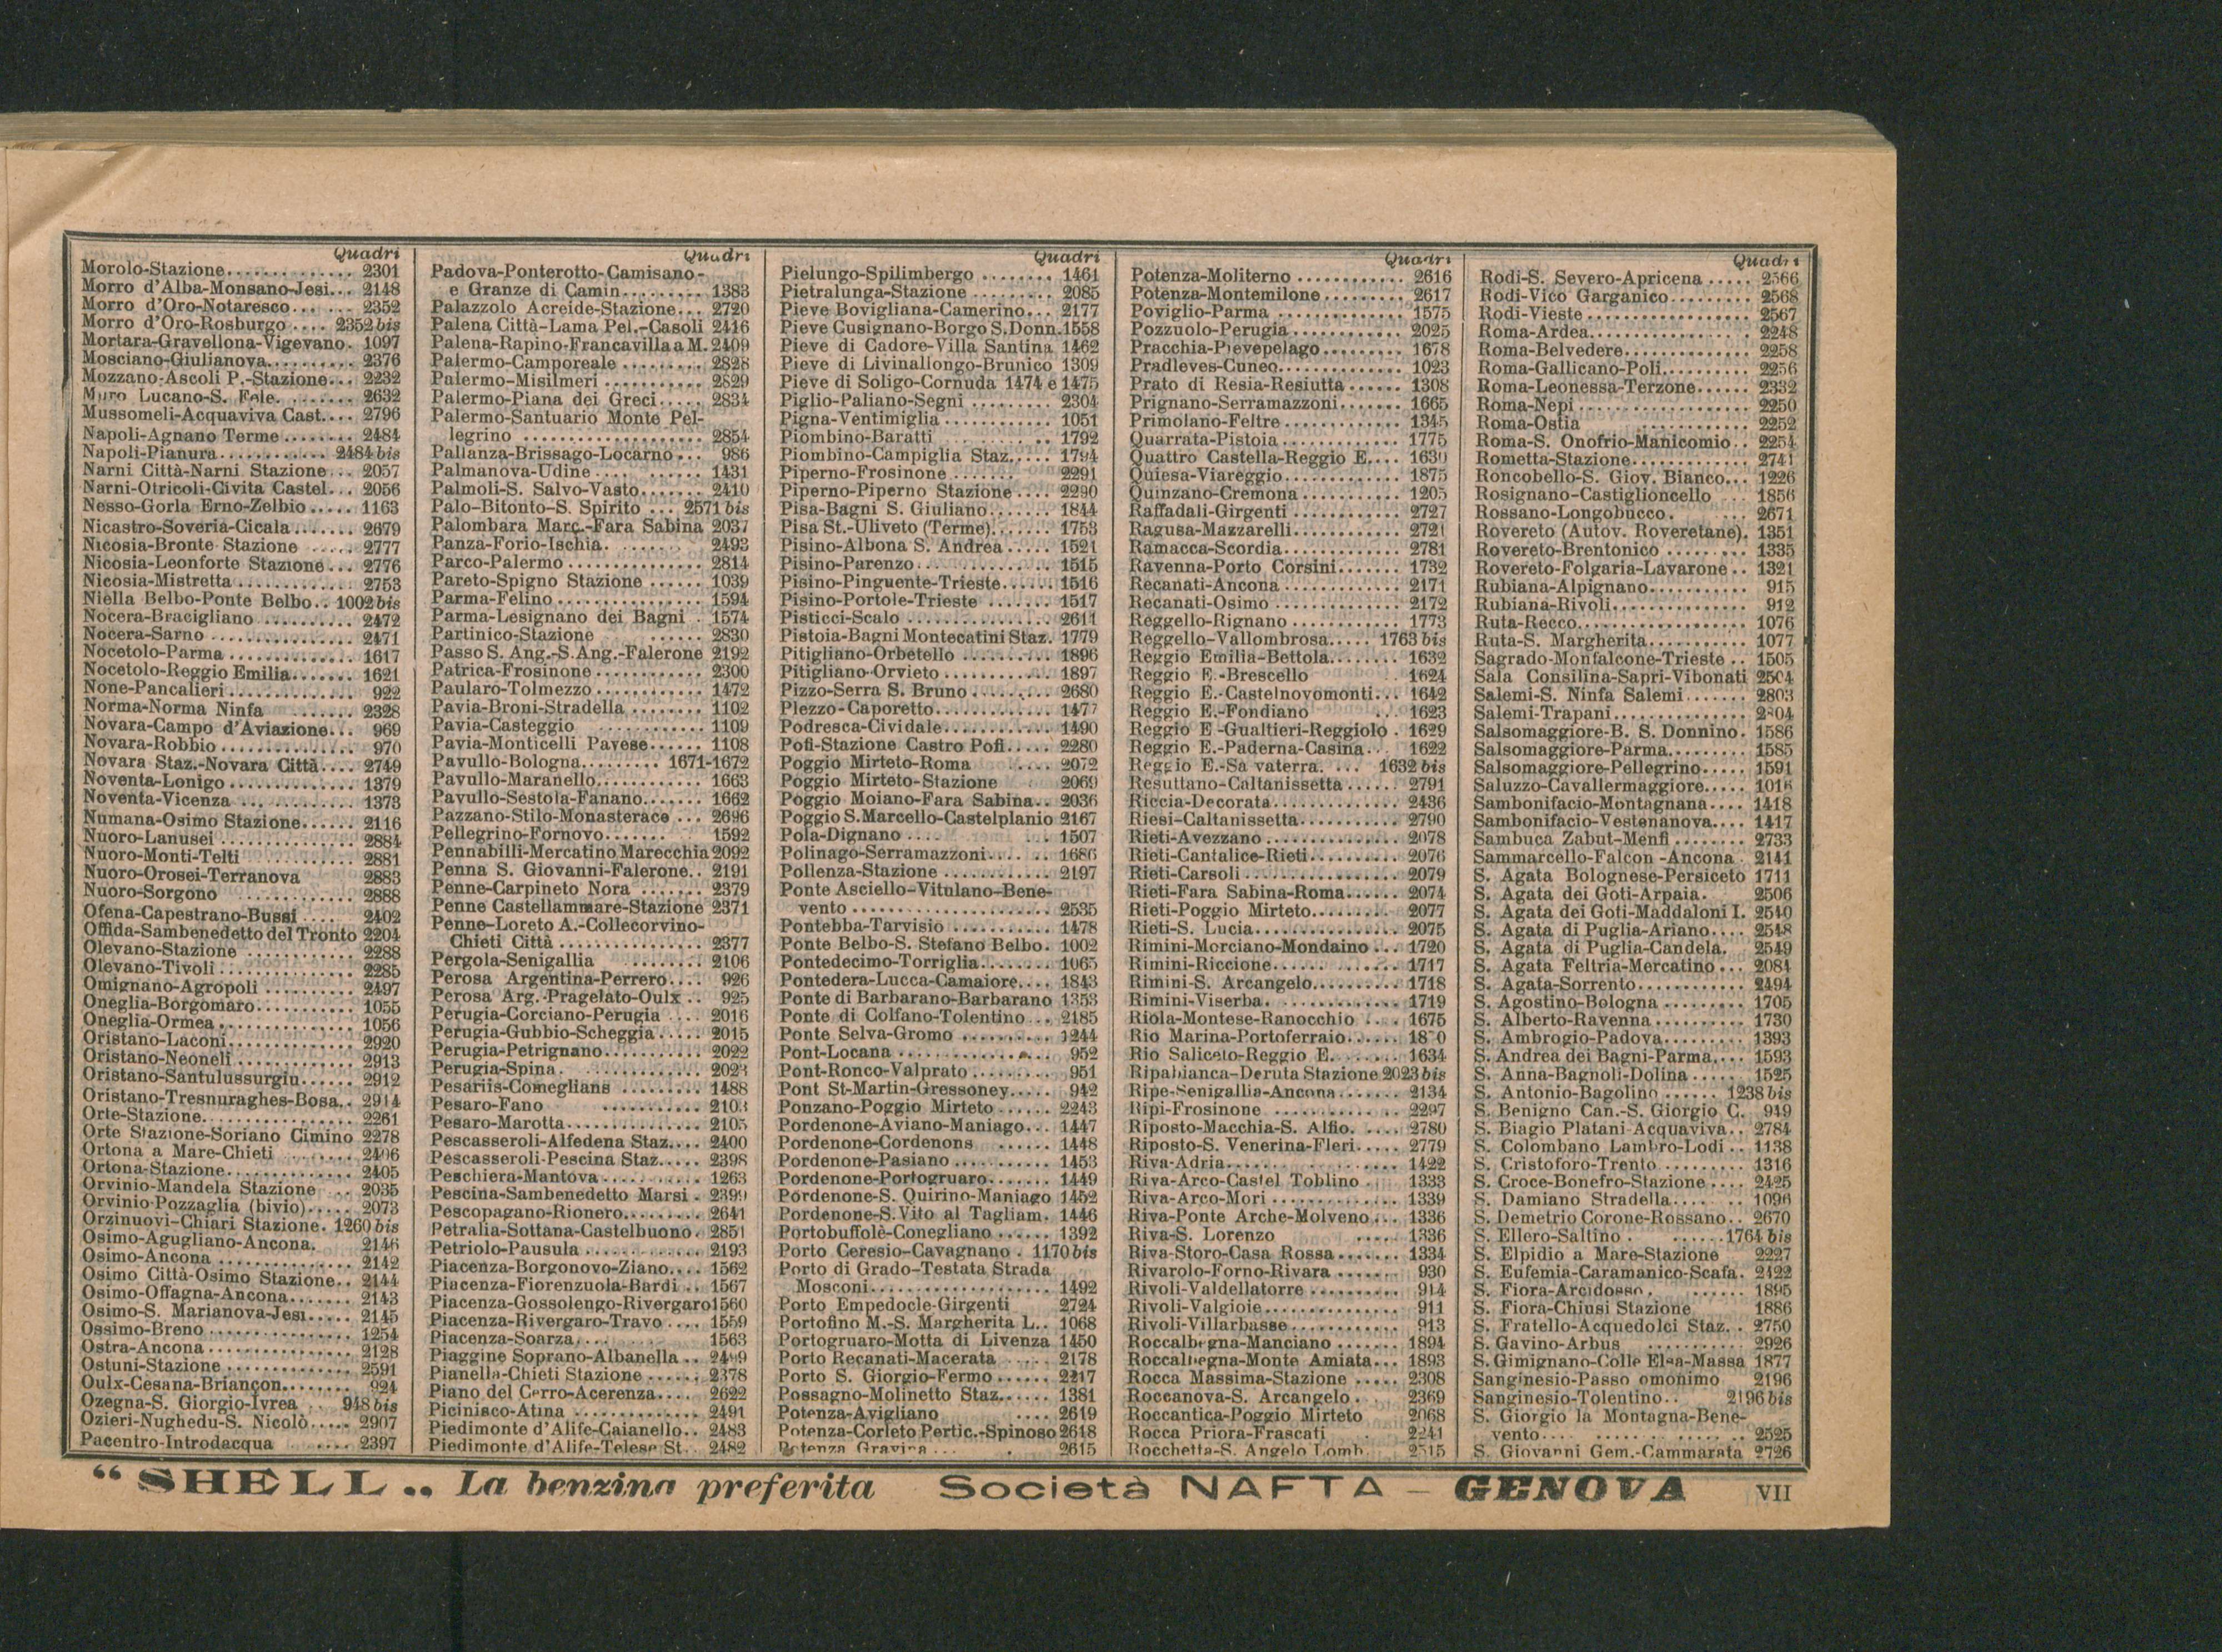 Quadri
Morolo-Stazione.............. 2301
Morro d'Alba-Monsano-Jesi... 2148
Morro d'Oro-Notaresco... ... 2352
Morro d'Oro-Rosburgo .... 2352 bis
Mortara-Gravellona-Vigevano. 1097
Mosciano-Giulianova.......... 2376
Mozzano-Ascoli P.-Stazione... 2232
Muro Lucano-S. Fele. ....... 2632
Mussomeli-Acquaviva Cast.... 2796
Napoli-Agnano Terme ........ 2484
Napoli-Pianura............ 2484 bis
Narni Città-Narni Stazione... 2057
Narni-Otricoli-Civita Castel... 2056
Nesso-Gorla Erno-Zelbio ..... 1163
Nicastro-Soveria-Cicala ....... 2679
Nicosia-Bronte Stazione ..... 2777
Nicosia-Leonforte Stazione... 2776
Nicosia-Mistretta ............. 2753
Niella Belbo-Ponte Belbo.. 1002 bis
Nocera-Bracigliano .......... 2472
Nocera-Sarno ................ 2471
Nocetolo-Parma .............. 1617
Nocetolo-Reggio Emilia....... 1621
None-Pancalieri .............. 922
Norma-Norma Ninfa ....... 2328
Novara-Campo d'Aviazione... 969
Novara-Robbio ............... 970
Novara Staz.-Novara Città.... 2749
Noventa-Lonigo .............. 1379
Noventa-Vicenza ... .......... 1373
Numana-Osimo Stazione...... 2116
Nuoro-Lanusei ............... 2884
Nuoro-Monti-Telti .......... 2881
Nuoro-Orosei-Terranova 2883
Nuoro-Sorgono ............ 2888
Ofena-Capestrano-Bussi .... 2402
Offida-Sambenedetto del Tronto 2204
Olevano-Stazione ............ 2288
Olevano-Tivoli ............... 2285
Omignano-Agropoli .......... 2497
Oneglia-Borgomaro........... 1055
Oneglia-Ormea............... 1056
Oristano-Laconi.............. 2920
Oristano-Neoneli ............. 2913
Oristano-Santulussurgiu...... 2912
Oristano-Tresnuraghes-Bosa.. 2914
Orte-Stazione................ 2261
Orte Stazione-Soriano Cimino 2278
Ortona a Mare-Chieti ........ 2406
Ortona-Stazione.............. 2405
Orvinio-Mandela Stazione .. 2035
Orvinio-Pozzaglia (bivio)..... 2073
Orzinuovi-Chiari Stazione. 1260 bis
Osimo-Agugliano-Ancona. 2146
Osimo-Ancona ............... 2142
Osimo Città-Osimo Stazione.. 2144
Osimo-Offagna-Ancona....... 2143
Osimo-S. Marianova-Jesi..... 2145
Ossimo-Breno ................ 1254
Ostra-Ancona................ 2128
Ostuni-Stazione .............. 2591
Oulx-Cesana-Briançon........ 924
Ozegna-S. Giorgio-Ivrea .. 948 bis
Ozieri-Nughedu-S. Nicolò..... 2907
Pacentro-Introdacqua .... 2397
Quadri
Padova-Ponterotto-Camisano-
e Granze di Camin......... 1383
Palazzolo Acreide-Stazione... 2720
Palena Città-Lama Pel.-Casoli 2416
Palena-Rapino-Francavilla a M. 2409
Palermo-Camporeale ......... 2828
Palermo-Misilmeri ........... 2829
Palermo-Piana dei Greci..... 2834
Palermo-Santuario Monte Pel-
legrino .................... 2854
Pallanza-Brissago-Locarno ... 986
Palmanova-Udine .... ....... 1431
Palmoli-S. Salvo-Vasto....... 2410
Palo-Bitonto-S. Spirito ... 2571 bis
Palombara Marc.-Fara Sabina 2037
Panza-Forio-Ischia. ........ 2493
Parco-Palermo ............... 2814
Pareto-Spigno Stazione ...... 1039
Parma-Felino ................ 1594
Parma-Lesignano dei Bagni . 1574
Partinico-Stazione ...... 2830
Passo S. Ang.-S. Ang.-Falerone 2192
Patrica-Frosinone ............ 2300
Paularo-Tolmezzo ............ 1472
Pavia-Broni-Stradella ........ 1102
Pavia-Casteggio ............ 1109
Pavia-Monticelli Pavese...... 1108
Pavullo-Bologna......... 1671-1672
Pavullo-Maranello............ 1663
Pavullo-Sestola-Fanano....... 1662
Pazzano-Stilo-Monasterace ... 2696
Pellegrino-Fornovo....... 1592
Pennabilli-Mercatino Marecchia 2092
Penna S. Giovanni-Falerone.. 2191
Penne-Carpineto Nora ....... 2379
Penne Castellammare-Stazione 2371
Penne-Loreto A.-Collecorvino-
Chieti Città ................ 2377
Pergola-Senigallia ......... 2106
Perosa Argentina-Perrero.... 926
Perosa Arg.-Pragelato-Oulx .. 925
Perugia-Corciano-Perugia ... 2016
Perugia-Gubbio-Scheggia..... 2015
Perugia-Petrignano........... 2022
Perugia-Spina. ............. 2023
Pesariis-Comeglians ......... 1488
Pesaro-Fano ........... 2103
Pesaro-Marotta............... 2105
Pescasseroli-Alfedena Staz.... 2400
Pescasseroli-Pescina Staz..... 2398
Peschiera-Mantova........... 1263
Pescina-Sambenedetto Marsi . 2399
Pescopagano-Rionero......... 2641
Petralia-Sottana-Castelbuono. 2851
Petriolo-Pausula ............. 2193
Piacenza-Borgonovo-Ziano.... 1562
Piacenza-Fiorenzuola-Bardi .. 1567
Piacenza-Gossolengo-Rivergaro 1560
Piacenza-Rivergaro-Travo .... 1559
Piacenza-Soarza.... 1563
Piaggine Soprano-Albanella .. 2499
Pianella-Chieti Stazione ...... 2378
Piano del Cerro-Acerenza.... 2622
Picinisco-Atina .............. 2491
Piedimonte d'Alife-Caianello.. 2483
Piedimonte d'Alife-Telese St. 2482
Quadri
Pielungo-Spilimbergo ........ 1461
Pietralunga-Stazione ......... 2085
Pieve Bovigliana-Camerino... 2177
Pieve Cusignano-Borgo S. Donn. 1558
Pieve di Cadore-Villa Santina 1462
Pieve di Livinallongo-Brunico 1309
Pieve di Soligo-Cornuda 1474 e 1475
Piglio-Paliano-Segni ......... 2304
Pigna-Ventimiglia ............ 1051
Piombino-Baratti ........... 1792
Piombino-Campiglia Staz..... 1794
Piperno-Frosinone ....... 2291
Piperno-Piperno Stazione .... 2290
Pisa-Bagni S. Giuliano....... 1844
Pisa St.-Uliveto (Terme)...... 1753
Pisino-Albona S. Andrea ..... 1521
Pisino-Parenzo............... 1515
Pisino-Pinguente-Trieste...... 1516
Pisino-Portole-Trieste ....... 1517
Pisticci-Scalo ................ 2611
Pistoia-Bagni Montecatini Staz. 1779
Pitigliano-Orbetello .......... 1896
Pitigliano-Orvieto ............ 1897
Pizzo-Serra S. Bruno......... 2680
Plezzo-Caporetto............. 1477
Podresca-Cividale............ 1490
Pofi-Stazione Castro Pofi..... 2280
Poggio Mirteto-Roma .... 2072
Poggio Mirteto-Stazione 2069
Poggio Moiano-Fara Sabina.. 2036
Poggio S. Marcello-Castelplanio 2167
Pola-Dignano .... ... 1507
Polinago-Serramazzoni.... .. 1686
Pollenza-Stazione ............ 2197
Ponte Asciello-Vitulano-Bene-
vento ...................... 2535
Pontebba-Tarvisio ........... 1478
Ponte Belbo-S. Stefano Belbo. 1002
Pontedecimo-Torriglia........ 1065
Pontedera-Lucca-Camaiore.... 1843
Ponte di Barbarano-Barbarano 1353
Ponte di Colfano-Tolentino... 2185
Ponte Selva-Gromo .......... 1244
Pont-Locana ................ 952
Pont-Ronco-Valprato ......... 951
Pont St-Martin-Gressoney..... 942
Ponzano-Poggio Mirteto ...... 2243
Pordenone-Aviano-Maniago... 1447
Pordenone-Cordenons ...... 1448
Pordenone-Pasiano ........... 1453
Pordenone-Portogruaro....... 1449
Pordenone-S. Quirino-Maniago 1452
Pordenone-S. Vito al Tagliam. 1446
Portobuffolè-Conegliano ...... 1392
Porto Ceresio-Cavagnano . 1170 bis
Porto di Grado-Testata Strada
Mosconi.................... 1492
Porto Empedocle-Girgenti 2724
Portofino M.-S. Margherita L.. 1068
Portogruaro-Motta di Livenza 1450
Porto Recanati-Macerata ..... 2178
Porto S. Giorgio-Fermo ...... 2217
Possagno-Molinetto Staz...... 1381
Potenza-Avigliano .... 2619
Potenza-Corleto Pertic.-Spinoso 2618
Potenza Gravina ... . 2615
Quadri
Potenza-Moliterno ............ 2616
Potenza-Montemilone......... 2617
Poviglio-Parma .............. 1575
Pozzuolo-Perugia ............ 2025
Pracchia-Pievepelago......... 1678
Pradleves-Cuneo.............. 1023
Prato di Resia-Resiutta ...... 1308
Prignano-Serramazzoni....... 1665
Primolano-Feltre ............. 1345
Quarrata-Pistoia ............. 1775
Quattro Castella-Reggio E.... 1630
Quiesa-Viareggio............. 1875
Quinzano-Cremona ........... 1205
Raffadali-Girgenti ............ 2727
Ragusa-Mazzarelli............ 2721
Ramacca-Scordia............. 2781
Ravenna-Porto Corsini....... 1732
Recanati-Ancona ............. 2171
Recanati-Osimo .............. 2172
Reggello-Rignano ............ 1773
Reggello-Vallombrosa..... 1763 bis
Reggio Emilia-Bettola........ 1632
Reggio E.-Brescello 1624
Reggio E.-Castelnovomonti... 1642
Reggio E.-Fondiano ... 1623
Reggio E.-Gualtieri-Reggiolo . 1629
Reggio E.-Paderna-Casina... 1622
Reggio E.-Sa vaterra. ... 1632 bis
Resuttano-Caltanissetta ...... 2791
Riccia-Decorata.............. 2436
Riesi-Caltanissetta........... 2790
Rieti-Avezzano ............... 2078
Rieti-Cantalice-Rieti.......... 2076
Rieti-Carsoli ................. 2079
Rieti-Fara Sabina-Roma...... 2074
Rieti-Poggio Mirteto......... 2077
Rieti-S. Lucia................ 2075
Rimini-Morciano-Mondaino ... 1720
Rimini-Riccione...... ....... 1717
Rimini-S. Arcangelo.......... 1718
Rimini-Viserba. ............. 1719
Riola-Montese-Ranocchio .... 1675
Rio Marina-Portoferraio...... 18 0
Rio Saliceto-Reggio E. ...... 1634
Ripabianca-Deruta Stazione 2023 bis
Ripe-Senigallia-Ancona....... 2134
Ripi-Frosinone .............. 2297
Riposto-Macchia-S. Alfio. .... 2780
Riposto-S. Venerina-Fleri..... 2779
Riva-Adria................... 1422
Riva-Arco-Castel Toblino . 1333
Riva-Arco-Mori .............. 1339
Riva-Ponte Arche-Molveno... 1336
Riva-S. Lorenzo ..... 1336
Riva-Storo-Casa Rossa....... 1334
Rivarolo-Forno-Rivara ...... 930
Rivoli-Valdellatorre .......... 914
Rivoli-Valgioie............... 911
Rivoli-Villarbasse............ 913
Roccalbegna-Manciano ....... 1894
Roccalbegna-Monte Amiata... 1893
Rocca Massima-Stazione ..... 2308
Roccanova-S. Arcangelo . 2369
Roccantica-Poggio Mirteto 2068
Rocca Priora-Frascati . 2241
Rocchetta-S. Angelo Lomb. 2515
Quadri
Rodi-S. Severo-Apricena ..... 2566
Rodi-Vico Garganico......... 2568
Rodi-Vieste .................. 2567
Roma-Ardea.................. 2248
Roma-Belvedere.............. 2258
Roma-Gallicano-Poli.......... 2256
Roma-Leonessa-Terzone...... 2332
Roma-Nepi ................... 2250
Roma-Ostia .............. 2252
Roma-S. Onofrio-Manicomio.. 2254
Rometta-Stazione............. 2741
Roncobello-S. Giov. Bianco... 1226
Rosignano-Castiglioncello ... 1856
Rossano-Longobucco. ... 2671
Rovereto (Autov. Roveretane). 1351
Rovereto-Brentonico ......... 1335
Rovereto-Folgaria-Lavarone .. 1321
Rubiana-Alpignano........... 915
Rubiana-Rivoli............... 912
Ruta-Recco................... 1076
Ruta-S. Margherita........... 1077
Sagrado-Monfalcone-Trieste .. 1505
Sala Consilina-Sapri-Vibonati 2504
Salemi-S. Ninfa Salemi ...... 2803
Salemi-Trapani............... 2804
Salsomaggiore-B. S. Donnino. 1586
Salsomaggiore-Parma......... 1585
Salsomaggiore-Pellegrino..... 1591
Saluzzo-Cavallermaggiore..... 1016
Sambonifacio-Montagnana.... 1418
Sambonifacio-Vestenanova.... 1417
Sambuca Zabut-Menfi ........ 2733
Sammarcello-Falcon -Ancona . 2141
S. Agata Bolognese-Persiceto 1711
S. Agata dei Goti-Arpaia. 2506
S. Agata dei Goti-Maddaloni I. 2540
S. Agata di Puglia-Ariano.... 2548
S. Agata di Puglia-Candela. 2549
S. Agata Feltria-Mercatino ... 2084
S. Agata-Sorrento............ 2494
S. Agostino-Bologna ......... 1705
S. Alberto-Ravenna .......... 1730
S. Ambrogio-Padova.......... 1393
S. Andrea dei Bagni-Parma.... 1593
S. Anna-Bagnoli-Dolina...... 1525
S. Antonio-Bagolino ...... 1238 bis
S. Benigno Can.-S. Giorgio C. 949
S. Biagio Platani-Acquaviva.. 2784
S. Colombano Lambro-Lodi .. 1138
S. Cristoforo-Trento ......... 1316
S. Croce-Bonefro-Stazione .... 2425
S. Damiano Stradella.... .. 1096
S. Demetrio Corone-Rossano.. 2670
S. Ellero-Saltino . ......1764 bis
S. Elpidio a Mare-Stazione 2227
S. Eufemia-Caramanico-Scafa. 2422
S. Fiora-Arcidosso. ...... 1895
S. Fiora-Chiusi Stazione 1886
S. Fratello-Acquedolci Staz. . 2750
S. Gavino-Arbus .......... 2926
S. Gimignano-Colle Elsa-Massa 1877
Sanginesio-Passo omonimo 2196
Sanginesio-Tolentino.. 2196 bis
S. Giorgio la Montagna-Bene-
vento.... ..... .. .......... 2525
S. Giovanni Gem.-Cammarata 2726
“SHELL„ La benzina preferita Società NAFTA – GENOVA VII